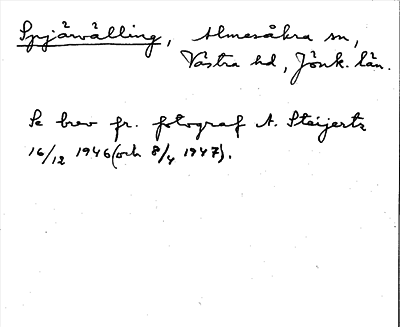 Spjärvälling, Almesåkra sn,
Västra hd, Jönk. län.
Se brev fr. fotograf A. Steijertz
16/12 1946 (och 8/4 1947).